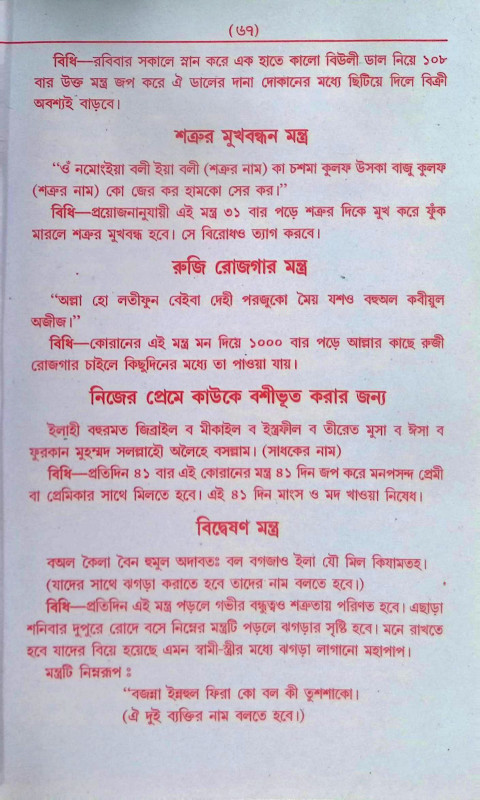 (৬৭)
বিধি—রবিবার সকালে স্নান করে এক হাতে কালো বিউলী ডাল নিয়ে ১০৮
বার উক্ত মন্ত্র জপ করে ঐ ডালের দানা দোকানের মধ্যে ছিটিয়ে দিলে বিক্রী
অবশ্যই বাড়বে।
শত্রুর মুখবন্ধন মন্ত্র
“ওঁ নমোংইয়া বলী ইয়া বলী (শত্রুর নাম) কা চশমা কুলফ উসকা বাজু কুলফ
(শত্রুর নাম) কো জের কর হামকো সের কর।”
বিধি—প্রয়োজনানুযায়ী এই মন্ত্র ৩১ বার পড়ে শত্রুর দিকে মুখ করে ফুঁক
মারলে শত্রুর মুখবন্ধ হবে। সে বিরোধও ত্যাগ করবে।
রুজি রোজগার মন্ত্র
“অল্লা হো লতীফুন বেইবা দেহী পরজুকো মৈয় যশও বহুঅল কবীয়ূল
অজীজ।”
বিধি—কোরানের এই মন্ত্র মন দিয়ে ১০০০ বার পড়ে আল্লার কাছে রুজী
রোজগার চাইলে কিছুদিনের মধ্যে তা পাওয়া যায়।
নিজের প্রেমে কাউকে বশীভূত করার জন্য
ইলাহী বহুরমত জিব্রাইল ব মীকাইল ব ইস্রফীল ব তীরেত মুসা ব ঈসা ব
ফুরকান মুহম্মদ সলল্লাহৌ অলৈহে বসল্লাম। (সাধকের নাম)
বিধি—প্রতিদিন ৪১ বার এই কোরানের মন্ত্র ৪১ দিন জপ করে মনপসন্দ প্রেমী
বা প্রেমিকার সাথে মিলতে হবে। এই ৪১ দিন মাংস ও মদ খাওয়া নিষেধ।
বিদ্বেষণ মন্ত্র
বঅল কৈলা বৈন হুমূল অদাবতঃ বল বগজাও ইলা যৌ মিল কিযামতহ।
(যাদের সাথে ঝগড়া করাতে হবে তাদের নাম বলতে হবে।)
বিধি—প্রতিদিন এই মন্ত্র পড়লে গভীর বন্ধুত্বও শত্রুতায় পরিণত হবে। এছাড়া
শনিবার দুপুরে রোদে বসে নিম্নের মন্ত্রটি পড়লে ঝগড়ার সৃষ্টি হবে। মনে রাখতে
হবে যাদের বিয়ে হয়েছে এমন স্বামী-স্ত্রীর মধ্যে ঝগড়া লাগানো মহাপাপ।
মন্ত্রটি নিম্নরূপ :
“বজন্না ইন্নহুল ফিরা কো বল কী তুশশাকো।
(ঐ দুই ব্যক্তির নাম বলতে হবে।)